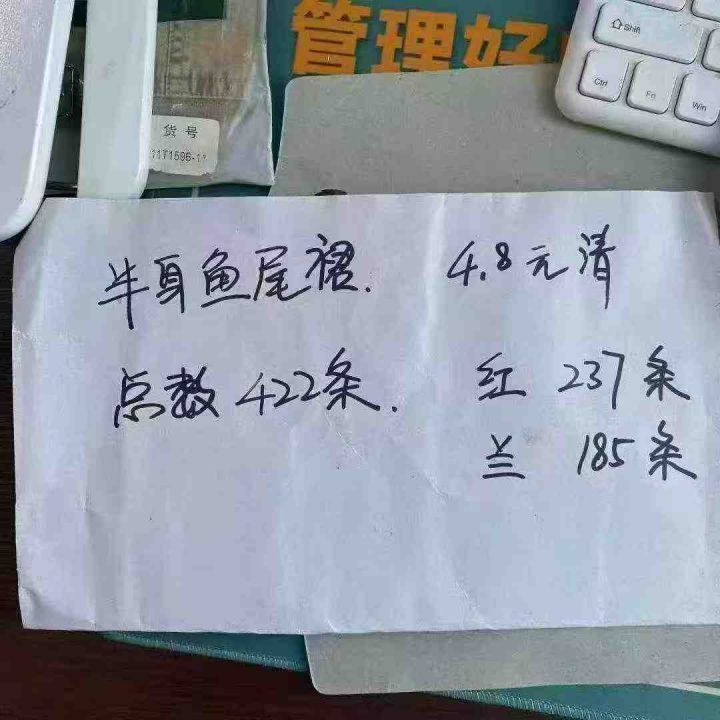 管理好
Shift
Ctrl
Fn
Win
货号
半身鱼尾裙. 4.8元清
点数422条. 红 237条
兰 185条